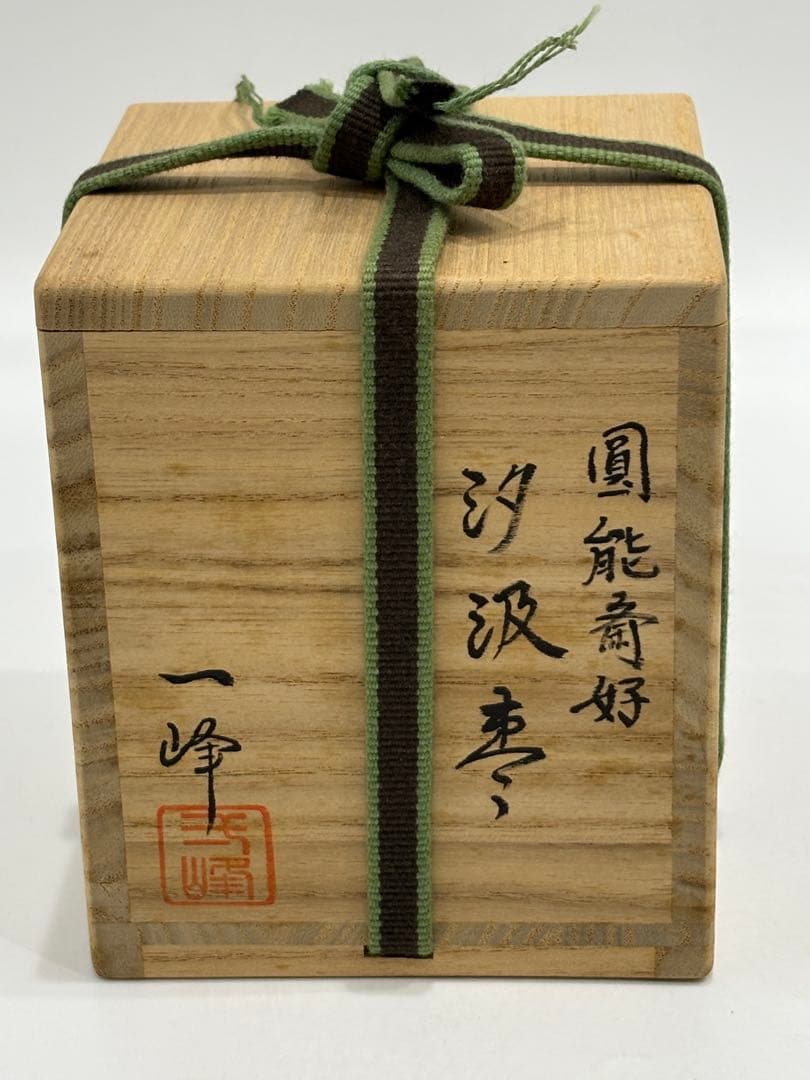 圓能斎好
汐汲棗
一峰
一峰